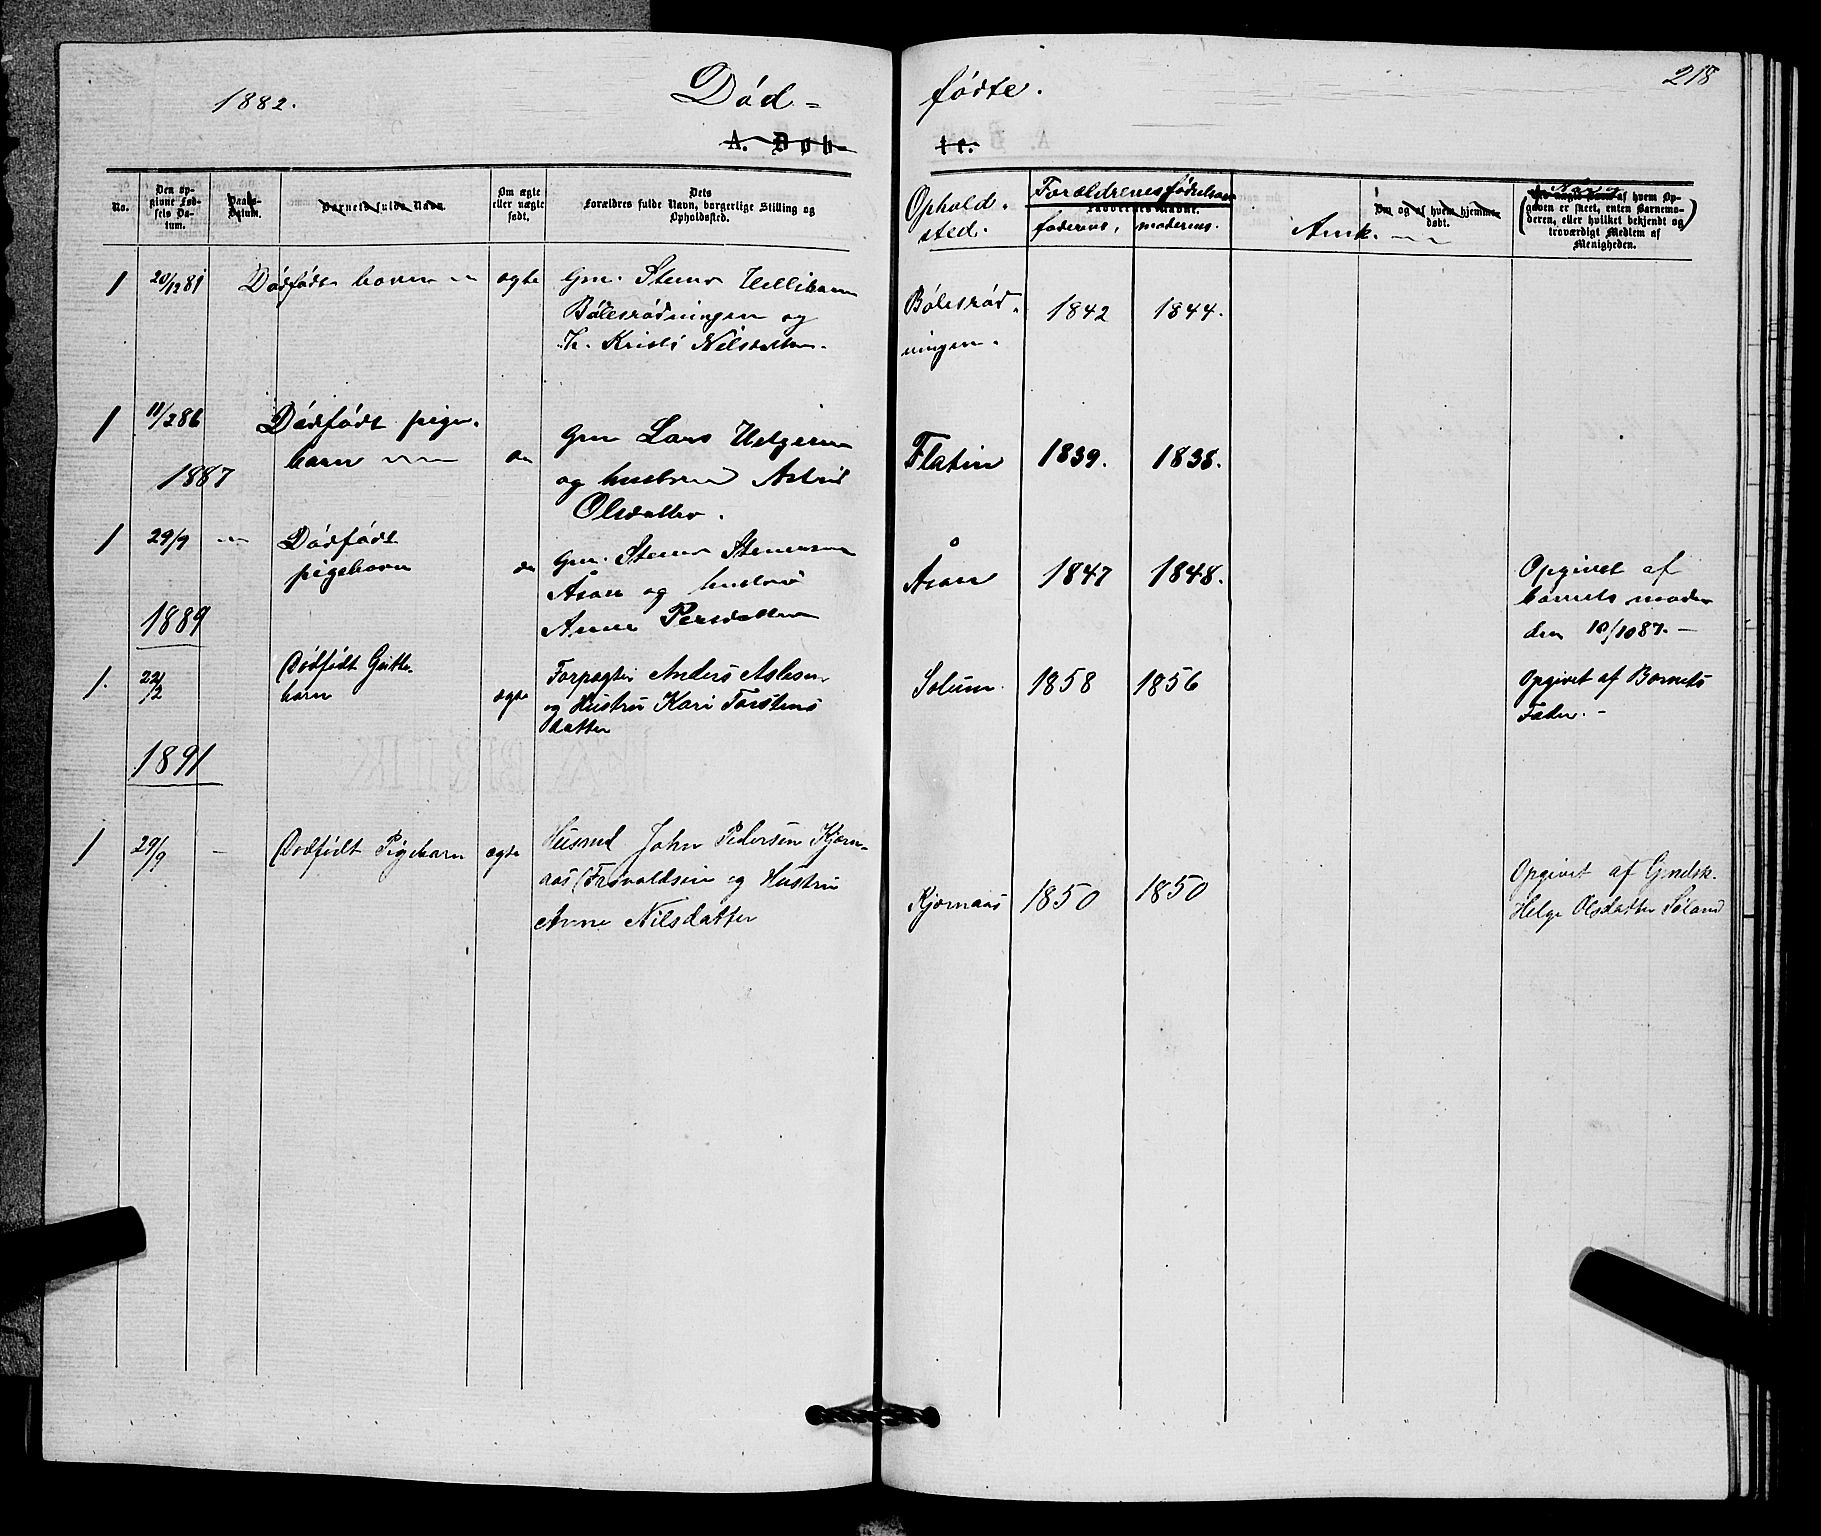 1882. Død= fødte. 218
A. Døb= te.
No. Den opgivne Fødsels Datum. Daabs-Datum. Barnets fulde Navn. Om ægte eller uægte født. Dets Forældres fulde Navn, borgerlige Stilling og Opholdssted. Opholdsted. Forældrenes fødselsaar faderens, moderens. Faddernes Navne. Anm. Om og af hvem hjemmedøbt. af hvem Opgaven er skeet, enten Barnemoderen, eller hvilket bekjendt og troværdigt Medlem af Menigheden.
1 20/12 81 Dødfødt barn ægte Gm. Stener Bølesrødningen 1842 1844.
Bølesrødningen og
h. Kristi Nilsdatter.
1 11/2 86 Dødfødt pige- Gm Lars Helgesen Flatin 1839. 1838.
barn do og hustru Astrid
Olsdatter.
1887
1 29/9 — Dødfødt do Gm. Stener Stenersen Åsan 1847 1848. Opgivet af
pigebarn Åsan og hustru barnets moder
Anne Persdatter den 10/10 87. —
1889
1. 22/2 Dødfødt Gutte- ægte Forpagter Anders Aslesen Solum. 1858 1856 Opgivet af Barnets
barn og Hustru Kari Torstens Fader. -
datter
1891
1 29/9 — Dødfødt Pigebarn ægte Husmd John Pedersen Kjørn-
aas (Frøvoldseie og Hustru Kjørnaas 1850 1850 Opgivet af Gmdsk.
Anne Nilsdatter Helge Olsdatter Søland